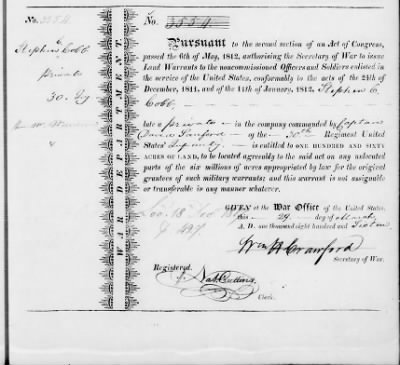 No. 3554
Stephen Cobb
private
30. Reg
WAR DEPARTMENT.
No. 3554
Pursuant to the second section of an Act of Congress,
passed the 6th of May, 1812, authorising the Secretary of War to issue
Land Warrants to the noncommissioned Officers and Soldiers enlisted in
the service of the United States, conformably to the acts of the 24th of
December, 1811, and of the 11th of January, 1812, Stephen C
Cobb
late a private in the company commanded by Captain
David Sanford of the 30th Regiment United
States' Infantry, is entitled to ONE HUNDRED AND SIXTY
ACRES OF LAND, to be located agreeably to the said act on any unlocated
parts of the six millions of acres appropriated by law for the original
grantees of such military warrants; and this warrant is not assignable
or transferable in any manner whatever.
GIVEN at the War Office of the United States,
this 29 day of March
A. D. one thousand eight hundred and Sixteen
Loc. 18
497
Wm H Crawford
Secretary of War.
Registered.
Clerk.